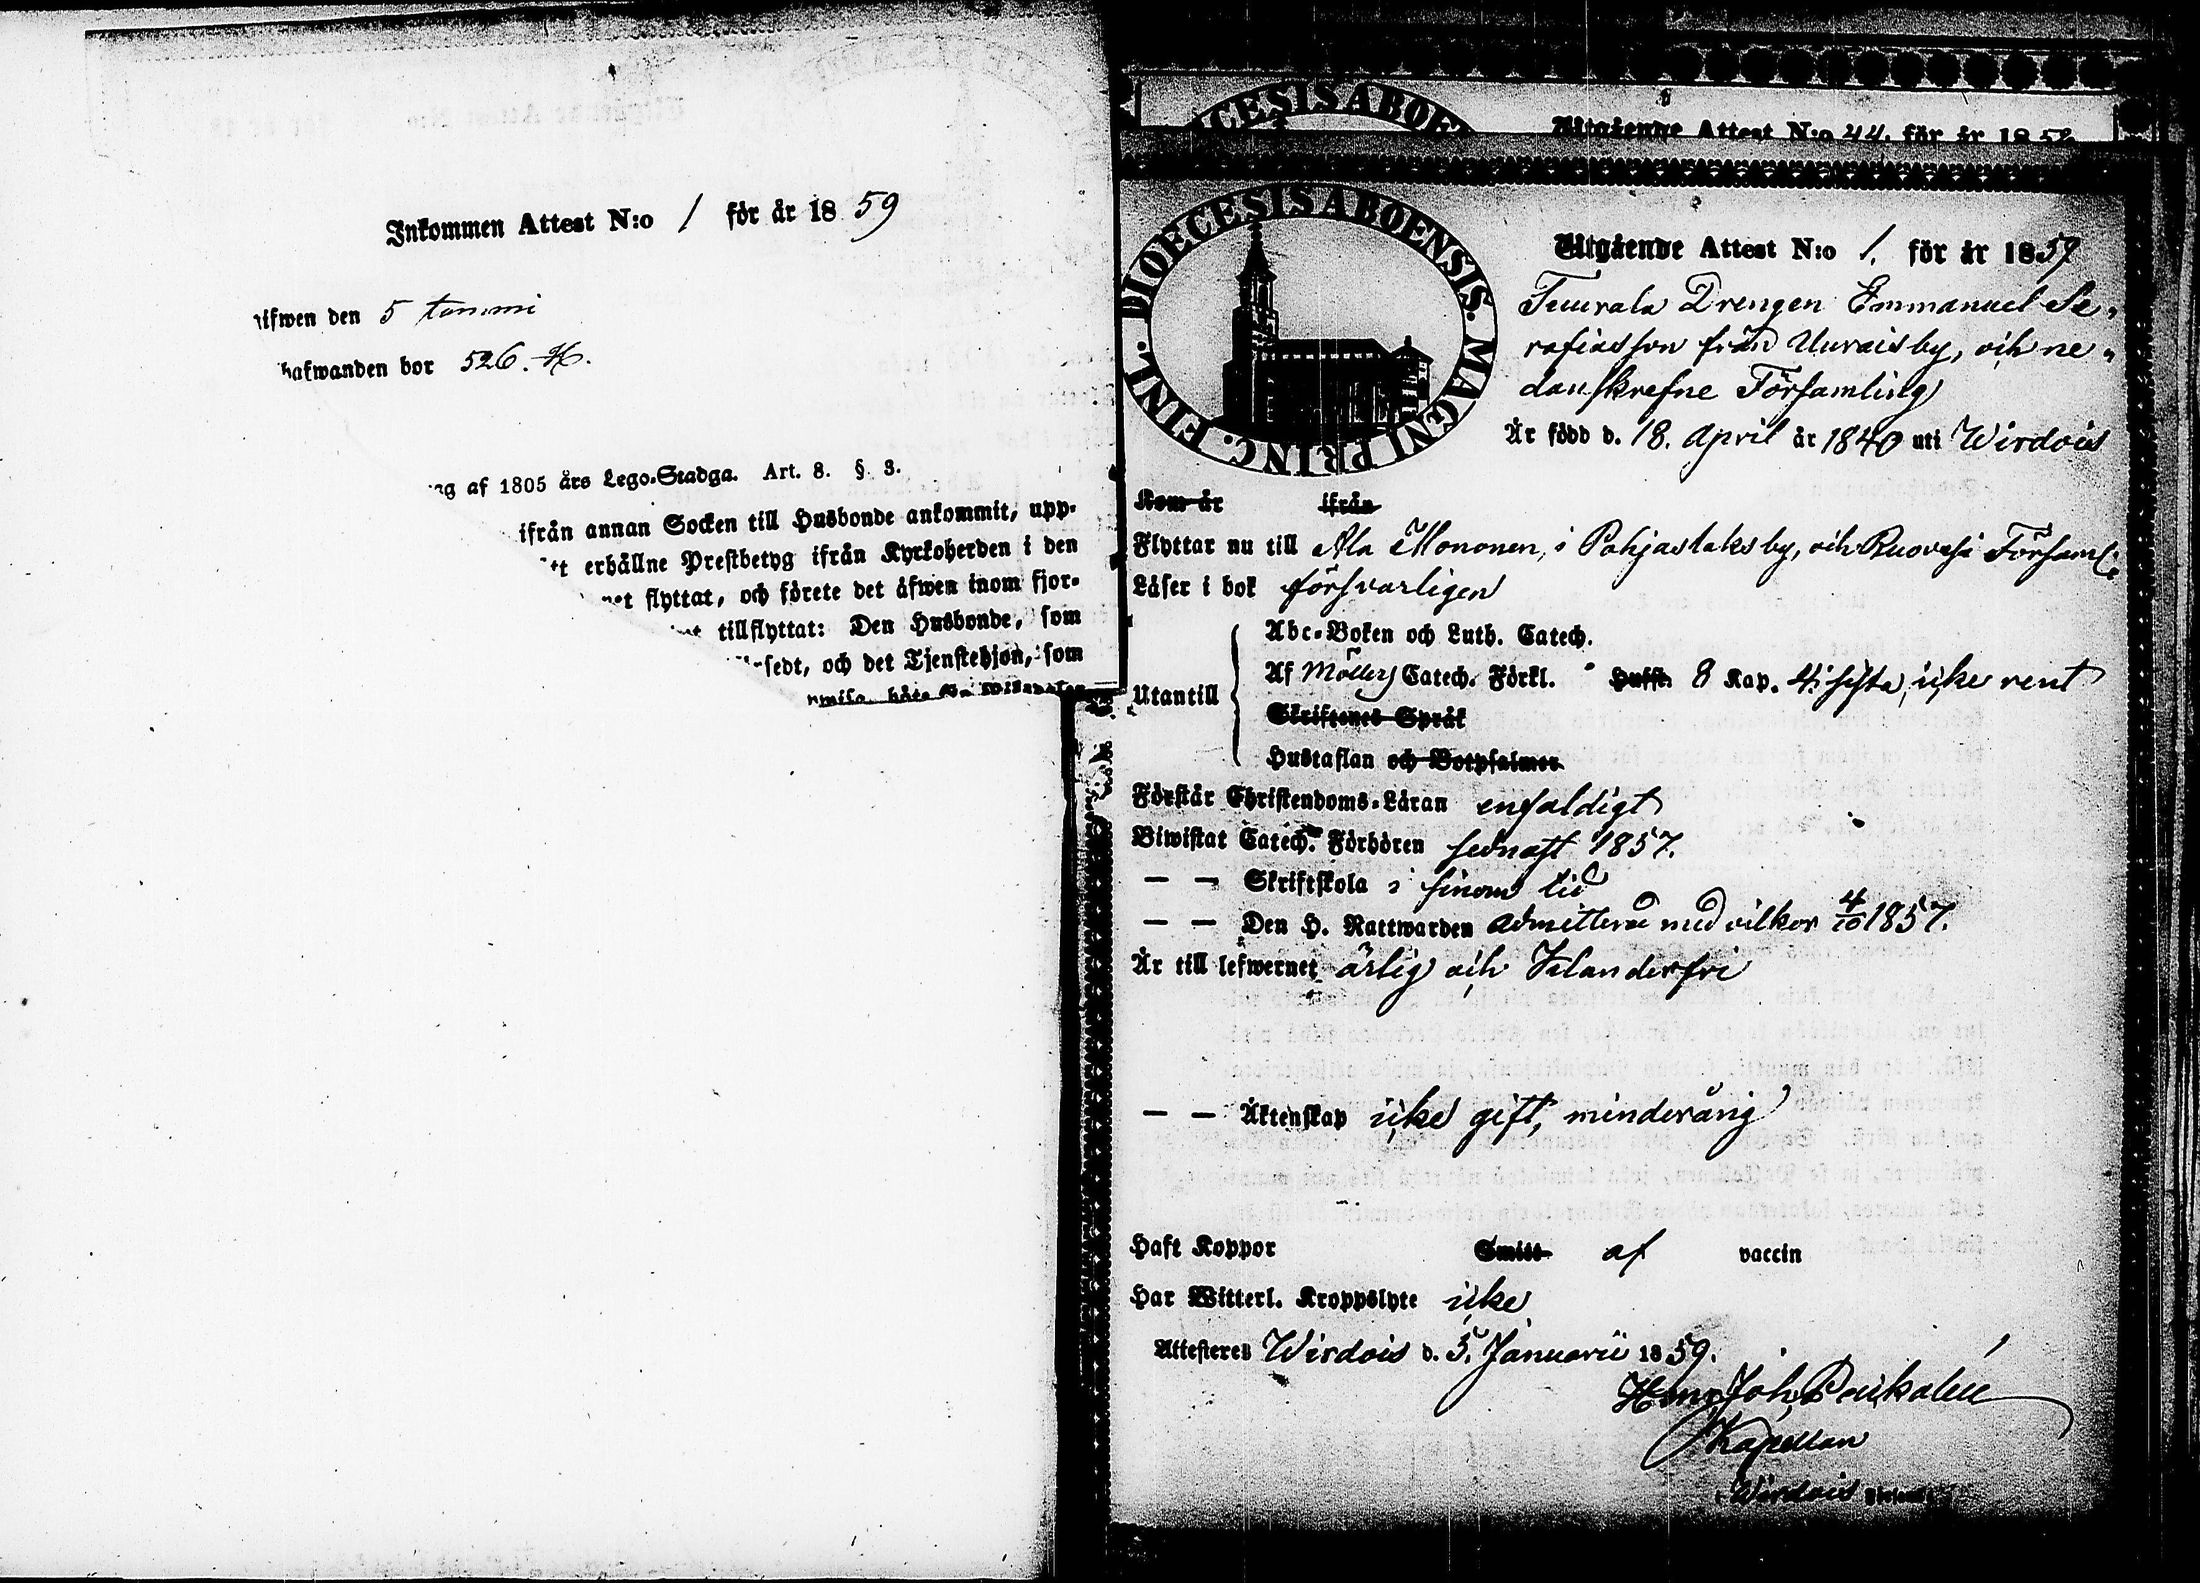 Inkommen Attest N:o 1 för år 1859
ifwen den 5 tammi
hafwanden bor 526. H.
ag af 1805 års Lego-Stadga. Art. 8. § 3.
ifrån annan Socken till Husbonde ankommit, upp-
tt erhållne Prestbetyg ifrån Kyrkoherden i den
et flyttat, och förete det äfwen inom fjor-
tillflyttat: Den Husbonde, som
sedt, och det Tjenstehjon, som
DIOECESIS ABOE
Utgående Attest N:o 44. för år 1858
DIOECESIS ABOENSIS. MAGNI PRINC. FINL.
Utgående Attest N:o 1. för år 1859
Drengen Emmanuel Se-
rafiasson från Uuraisby, och ne-
danskrefne Församling
Är född d. 18. April år 1840 uti Wirdois
Kom år ifrån
Flyttar nu till Ala Mononen, i Pohjaslaksby, och Ruovesi Församl.
Läser i bok försvarligen
Abc-Boken och Luth. Catech.
Af Möllers Catech. Förkl. Hufst. 8 Kap. 4 i sista, icke rent
Utantill
Skriftenes Språk
Hustaflan och Botpsalmer
Förstår Christendoms-Läran enfaldigt
Biwistat Catech. Förhören sednast 1857.
— — Skriftskola i sinom tid
— — Den H. Nattwarden admitterad med vilkor 4/10 1857.
Är till lefwernet ärlig och Klanderfri
— — Äktenskap icke gift, minderårig
Haft Koppor Smitt af vaccin
Har Witterl. Kroppslyte icke
Attesteres Wirdois d. 5. Januarii 1859.
Joh.
Kapellan
Wirdois